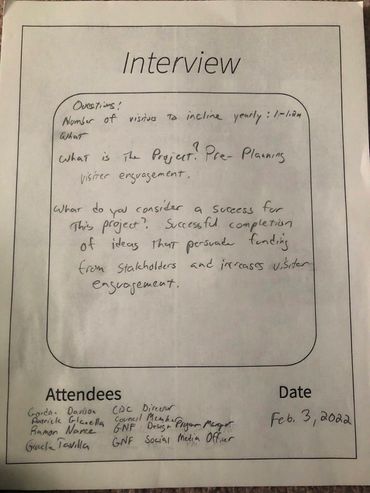 Interview
Questions:
Number of visitors to incline yearly:
What
What is the Project? Pre-Planning
visitor engagement.
What do you consider a success for
this project? Successful completion
of ideas that persuade funding
from stakeholders and increases visitor
engagement.
Attendees
Date
Davison CDC Director
Council Member
Ramon Nance GNF Design Program Manager
GNF Social Media Officer
Feb. 3, 2022